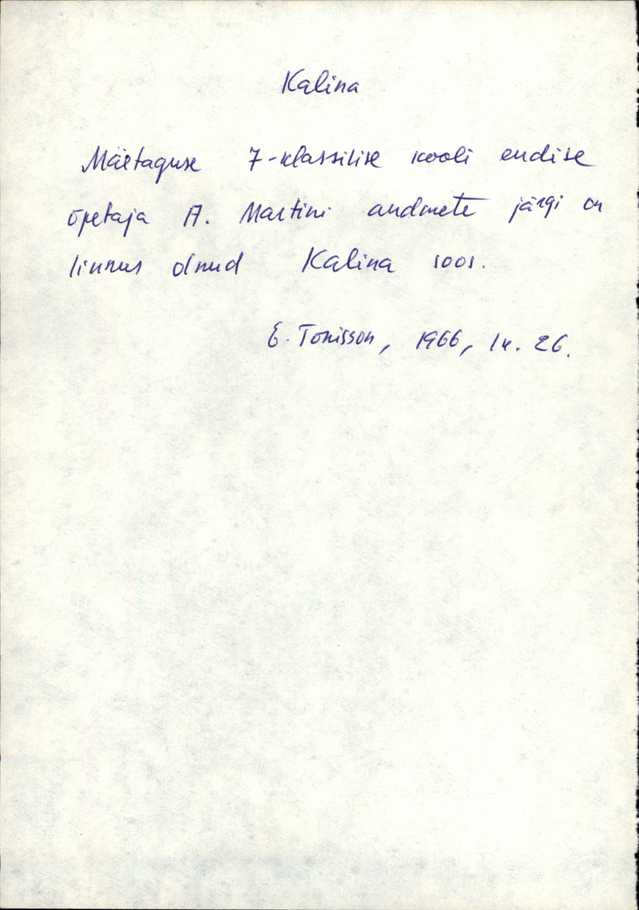 Kalina
Mäetaguse 7-klassilise kooli endise
õpetaja A. Martini andmete järgi on
linnus olnud Kalina soos.
E. Tõnisson, 1966, lk. 26.